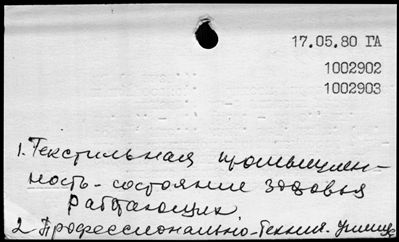 17.05.80 ГА
1002902
1002903
1. Текстильная промышлен-
ность - состояние здовья
работающих
2. Профессионально-технич. училище